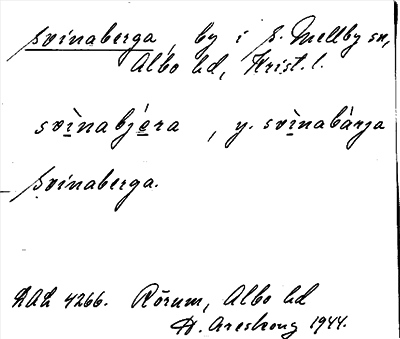 Svinaberga, by i S. Mellby sn,
Albo hd, Krist. l.
svinabjera , y. svinabärja
Svinaberga.
LAL 4266. Rörum, Albo hd
H. Areskoug 1944.